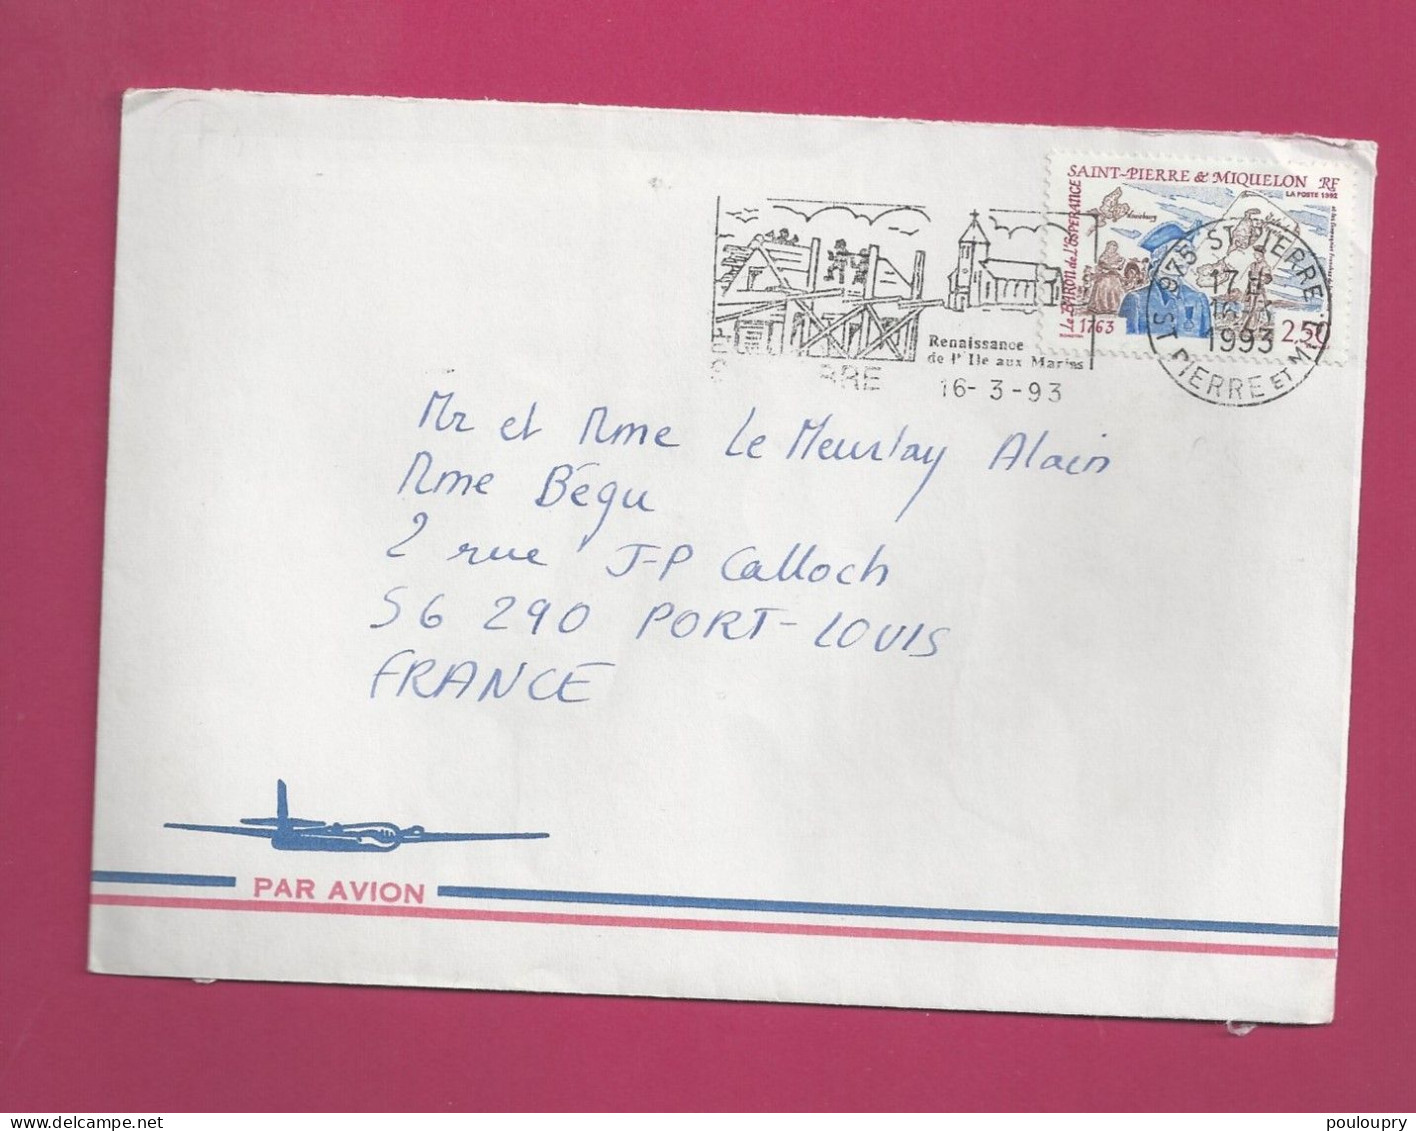 SAINT-PIERRE & MIQUELON RF
LA POSTE 1992
Le BARON de L'ESPERANCE
1763
2,50
975 ST PIERRE
17 H
16-3
1993
ST PIERRE ET M.
Renaissance
de l'Ile aux Marins
16-3-93
Mr et Mme Le Meurlay Alain
Mme Bégu
2 rue J-P Calloch
56 290 PORT-LOUIS
FRANCE
PAR AVION
pouloupry